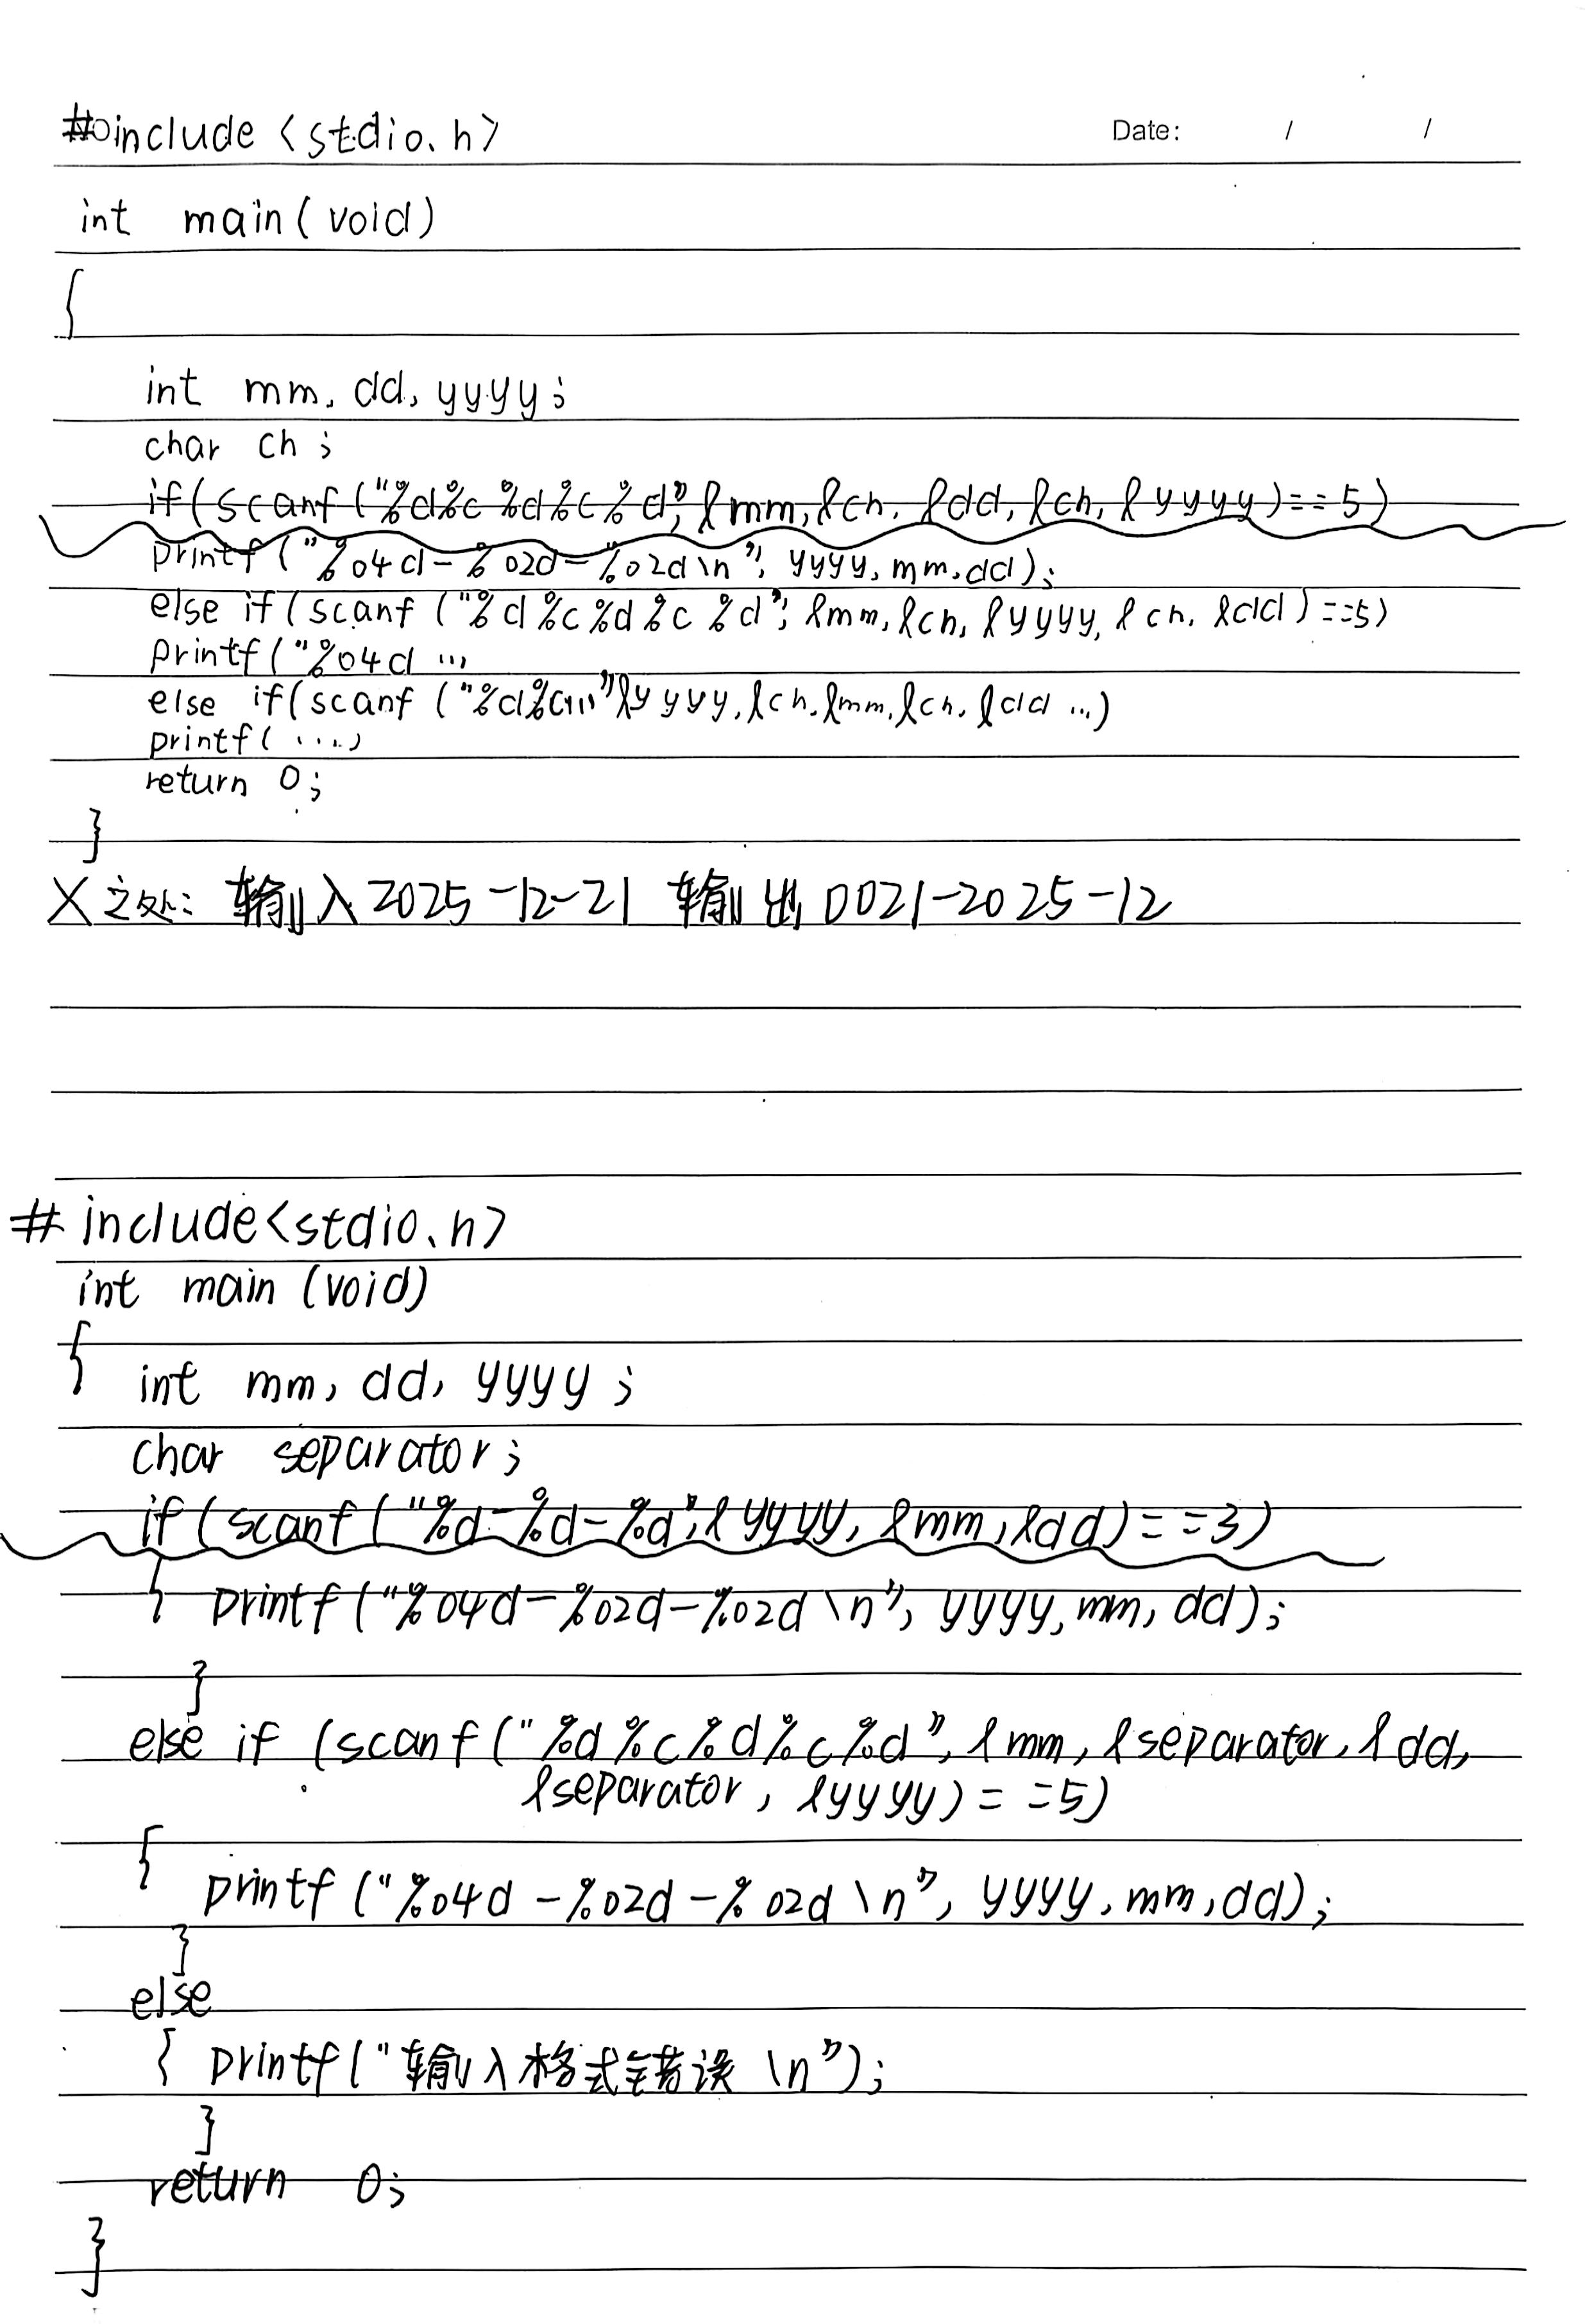 #include <stdio.h>
Date: / /
int main(void)
{
int mm, dd, yyyy;
char ch;
if(scanf("%d%c%d%c%d", &mm,&ch, &dd, &ch, &yyyy)==5)
printf("%04d-%02d-%02d\n", yyyy, mm, dd);
else if(scanf("%d%c%d%c%d", &mm,&ch, &yyyy, &ch, &dd)==5)
printf("%04d ...
else if(scanf("%d%c..."&yyyy,&ch,&mm,&ch,&dd ...)
printf(....)
return 0;
}
X之处: 输入2025-12-21 输出0021-2025-12
#include<stdio.h>
int main (void)
{ int mm, dd, yyyy;
char separator;
if(scanf("%d-%d-%d",&yyyy, &mm,&dd)==3)
{ printf("%04d-%02d-%02d\n", yyyy, mm, dd);
}
else if (scanf("%d%c%d%c%d", &mm, &separator, &dd,
&separator, &yyyy)==5)
{ printf("%04d-%02d-%02d\n", yyyy, mm, dd);
}
else
{ printf("输入格式错误\n");
}
return 0;
}